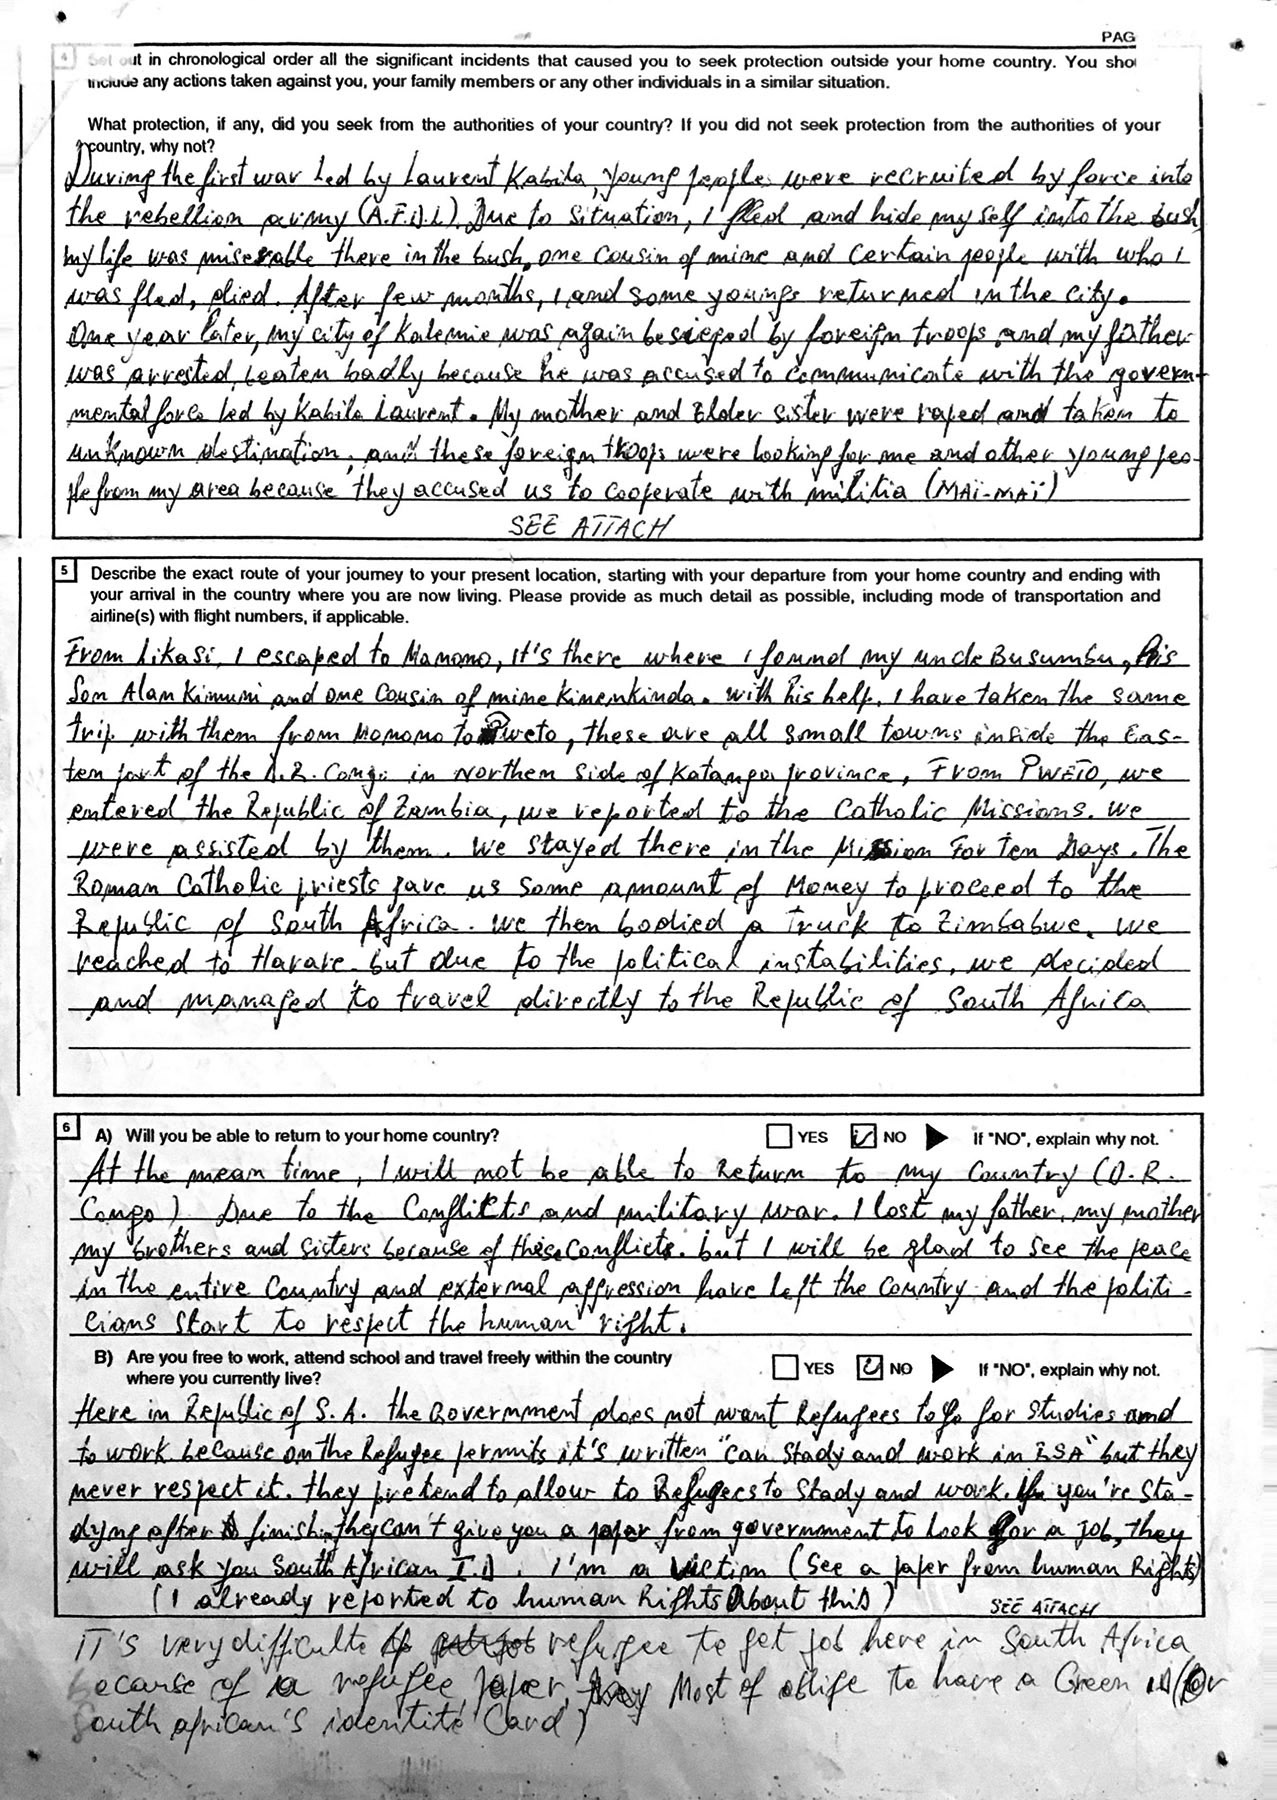 PAG
4 Set out in chronological order all the significant incidents that caused you to seek protection outside your home country. You shou
include any actions taken against you, your family members or any other individuals in a similar situation.
What protection, if any, did you seek from the authorities of your country? If you did not seek protection from the authorities of your
country, why not?
During the first war Led by Laurent Kabila, young people were recruited by force into
the rebellion army (A.F.D.L). Due to situation, I fled and hide my self into the bush,
my life was miserable there in the bush, one cousin of mine and certain people with who I
was fled, died. After few months, I and some youngs returned in the city.
One year later, my city of Kalemie was again besieged by foreign troops and my father
was arrested, beaten badly because he was accused to communicate with the govern-
mental force led by Kabila Laurent. My mother and Elder sister were raped and taken to
unknown destination, and these foreign troops were looking for me and other young peo-
ple from my area because they accused us to cooperate with militia (MAÏ-MAÏ)
SEE ATTACH
5 Describe the exact route of your journey to your present location, starting with your departure from your home country and ending with
your arrival in the country where you are now living. Please provide as much detail as possible, including mode of transportation and
airline(s) with flight numbers, if applicable.
From Likasi, I escaped to Manono, it's there where I found my uncle Busumbu, his
Son Alan Kimuni and one Cousin of mine Kinenkinda. With his help, I have taken the same
trip with them from Monono to Pweto, these are all small towns inside the Eas-
ten part of the D.R. Congo in Northen side of Katanga province, From PWETO, we
entered the Republic of Zambia, we reported to the Catholic Missions. We
were assisted by them. We stayed there in the Mission For Ten Days. The
Roman Catholic priests gave us some amount of Money to proceed to the
Republic of South Africa. We then bodied a Truck to Zimbabwe. We
reached to Harare. but due to the political instabilities, we decided
and managed to travel directly to the Republic of South Africa
6 A) Will you be able to return to your home country? YES NO If "NO", explain why not.
At the mean time, I will not be able to Return to my Country (D.R.
Congo). Due to the Conflicts and military war. I lost my father, my mother
my brothers and sisters because of these conflicts. but I will be glad to see the peace
in the entire Country and external aggression have left the country and the politi-
cians start to respect the human right.
B) Are you free to work, attend school and travel freely within the country YES NO If "NO", explain why not.
where you currently live?
Here in Republic of S.A. the Government does not want Refugees to go for studies and
to work because on the Refugee permits it's written "can stady and work in RSA" but they
never respect it. they pretend to allow to Refugees to stady and work. If you're sta-
dying after finishing they can't give you a paper from government to look for a job, they
will ask you South African I.D. I'm a victim (see a paper from human Rights)
(I already reported to human Rights About this)
SEE ATTACH
IT's very difficulte refugee to get job here in South Africa
because of a refugee paper, Most of to have a Green ID (or
South african's identite Card)